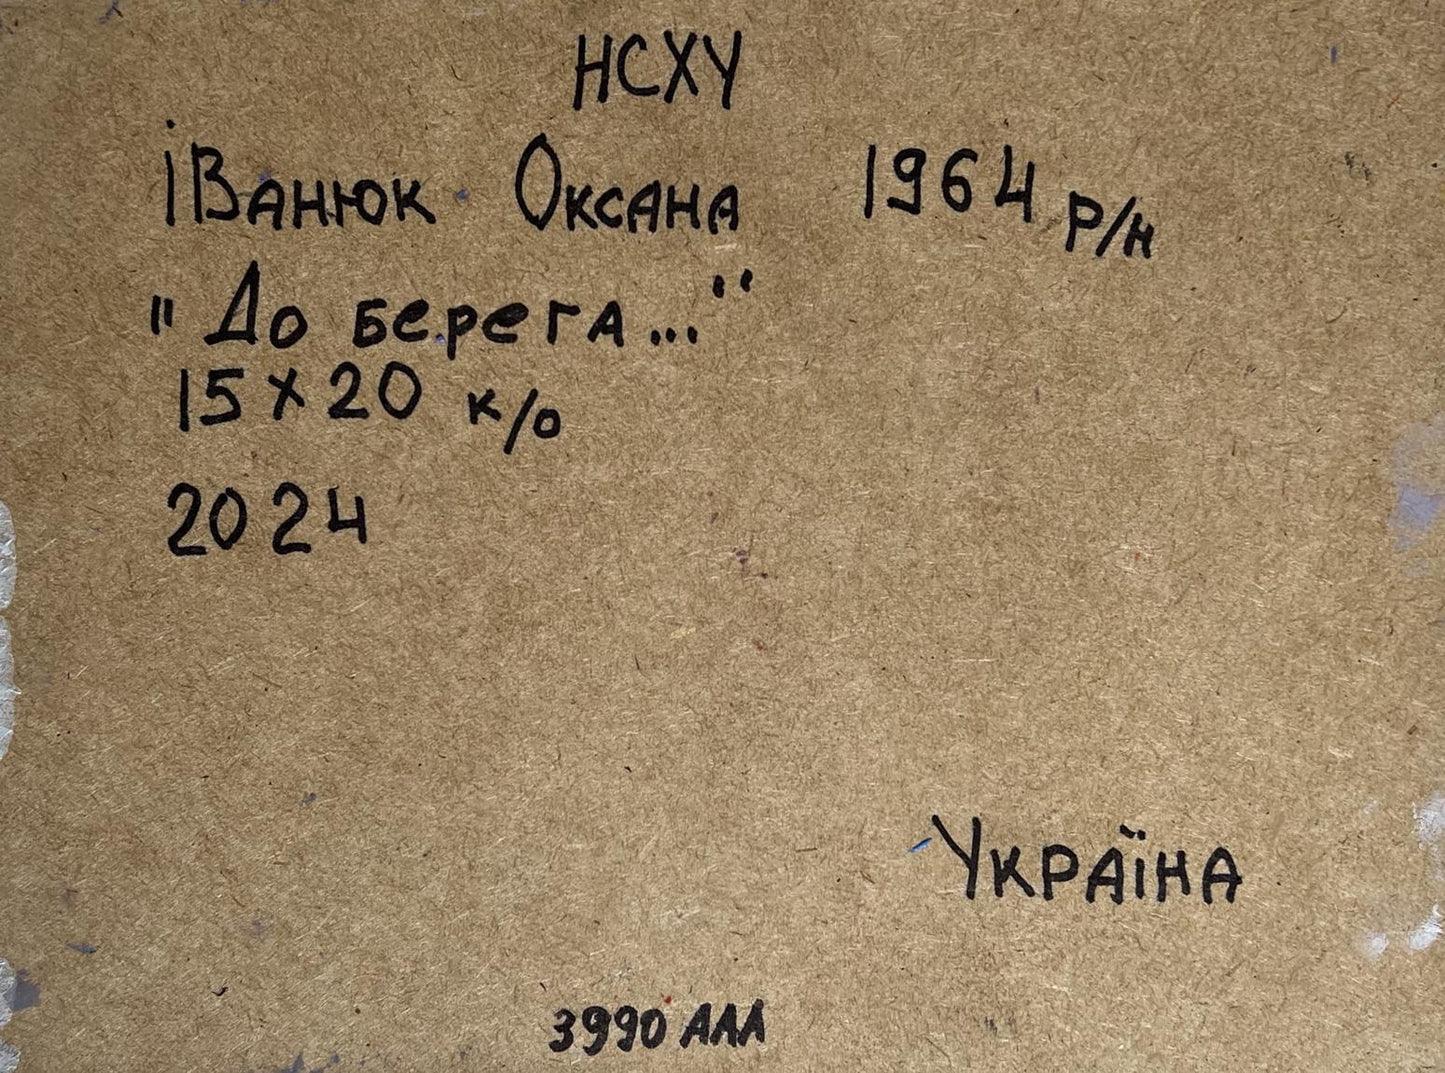 НСХУ
іВанюк Оксана 1964 р/н
"До берега..."
15х20 к/о
2024
Україна
3990 ААА